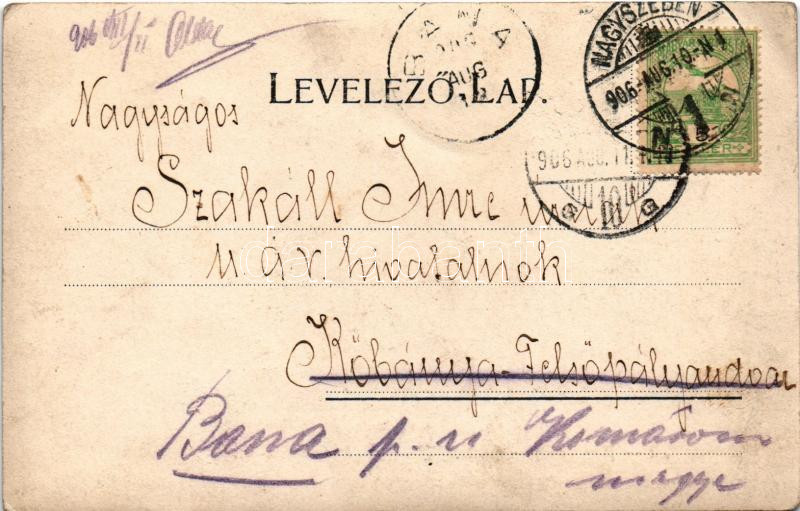 906 VIII/11
BANA
AUG
NAGYSZEBEN
906 AUG. 10 - N 1
906 AUG. 11. N
LEVELEZŐ-LAP.
Nagyságos
Szakáll Imre
M ÁV hivatalnok
Kőbánya-Felsőpályaudvar
Bana p. u Komárom
megye
darabanth